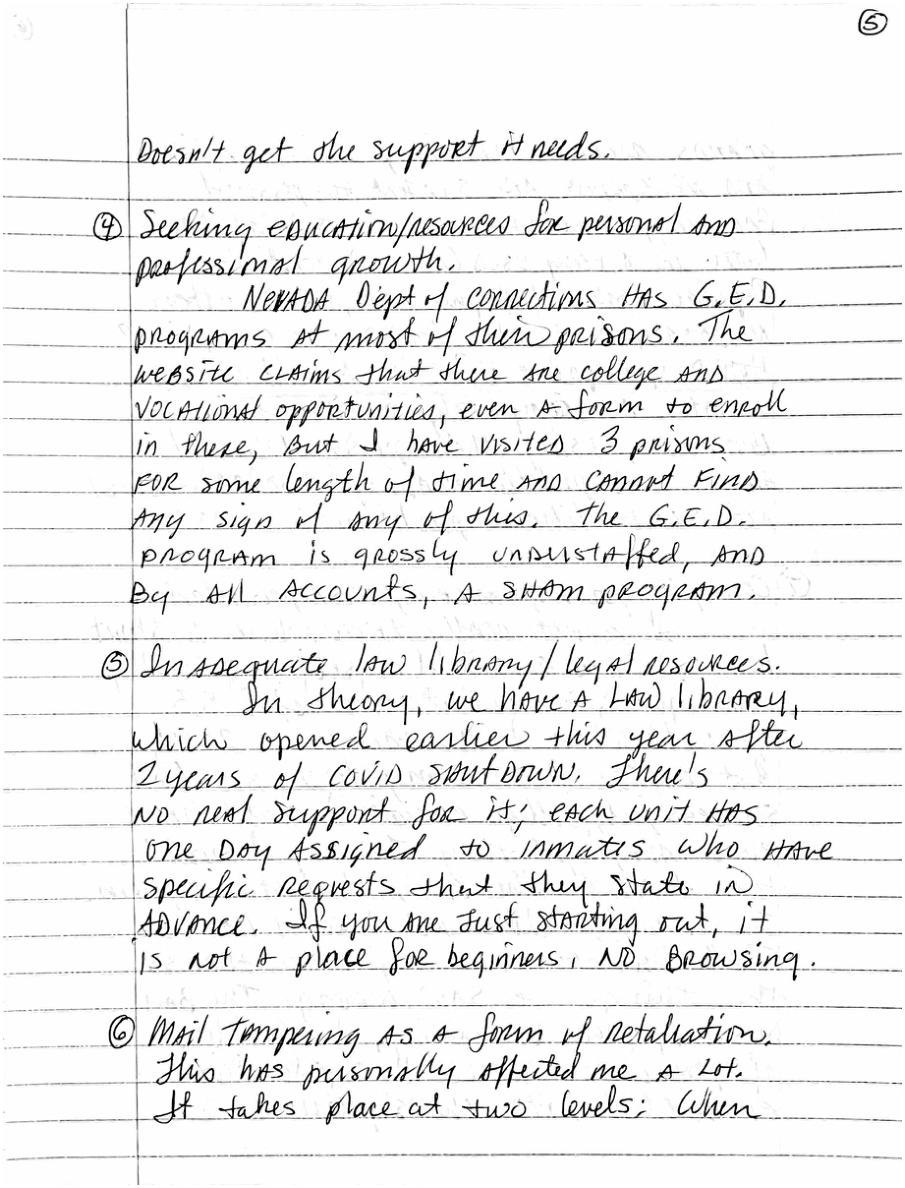 ⑤
Doesn't get the support it needs.
④ Seeking education/resources for personal and
professional growth.
Nevada Dept of Corrections has G.E.D.
programs at most of their prisons. The
website claims that there are college and
vocational opportunities, even a form to enroll
in these, but I have visited 3 prisons
for some length of time and cannot find
any sign of any of this. The G.E.D.
program is grossly understaffed, and
by all accounts, a sham program.
⑤ Inadequate law library/legal resources.
In theory, we have a law library,
which opened earlier this year after
2 years of COVID shutdown. There's
no real support for it; each unit has
one day assigned to inmates who have
specific requests that they state in
advance. If you are just starting out, it
is not a place for beginners, no browsing.
⑥ Mail tampering as a form of retaliation.
This has personally affected me a lot.
It takes place at two levels: When